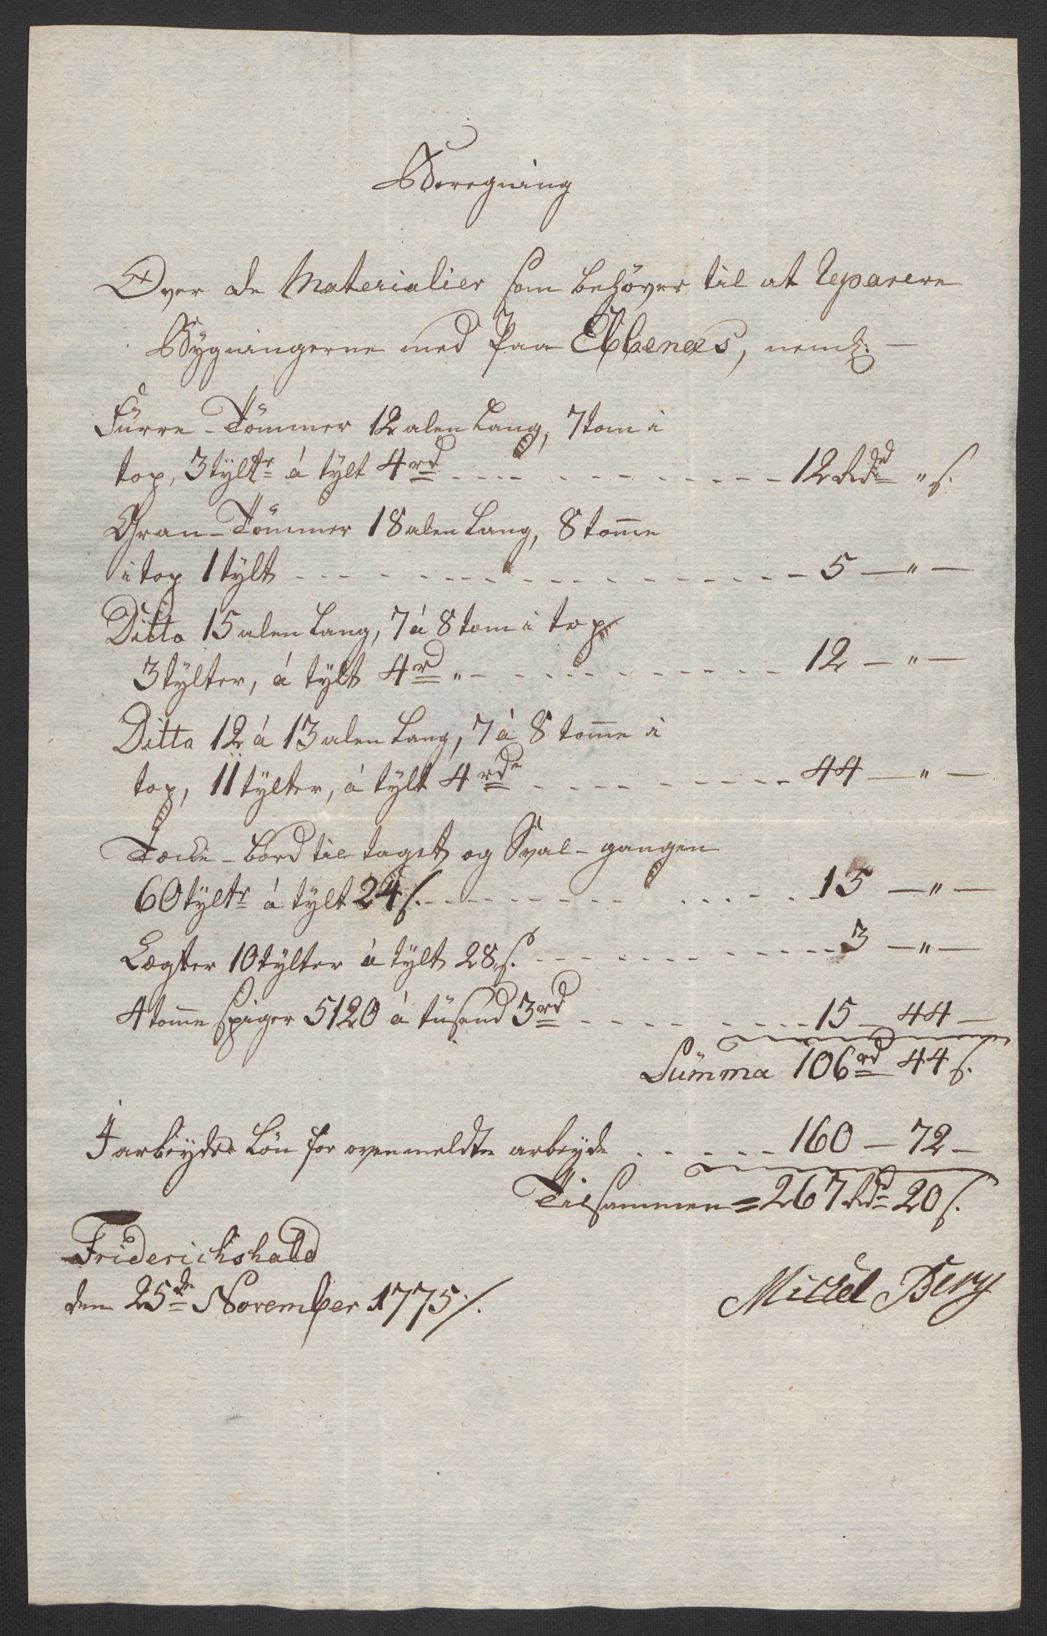 Beregning
Over de Materialier som behøves til at Reparere
Bygningerne med paa Ebbenæs, neml:
Fürre-Tömmer 12 alen Lang, 7 tom i
top, 3 tÿltr á tÿlt 4rd - - - 12 Rdd " s.
Gran-Tömmer 18 alen Lang, 8 tome
i top 1 tÿlt - - - 5 — " —
Ditto 15 alen Lang, 7 á 8 tom i top
3 tÿlter, á tÿlt 4rd " - - - 12 — " —
Ditto 12 á 13 alen Lang, 7 á 8 tome i
top, 11 tÿlter, á tÿlt 4rde - - - 44 — " —
Tæcke-bord til taget og Sval-gangen
60 tÿltr á tÿlt 24 s. - - - 15 — " —
Lægter 10 tÿlter á tÿlt 28 s. - - - 3 — " —
4 tome Spiger 5120 á tüsend 3rd - - - 15 — 44 —
Summa 106rd 44 s.
I arbeyds Løn for ovenmeldte arbeyde - - - 160 — 72 —
Tilsammen = 267 Rd 20 s.
Friderichshald
den 25de November 1775 /.
Michel Berg